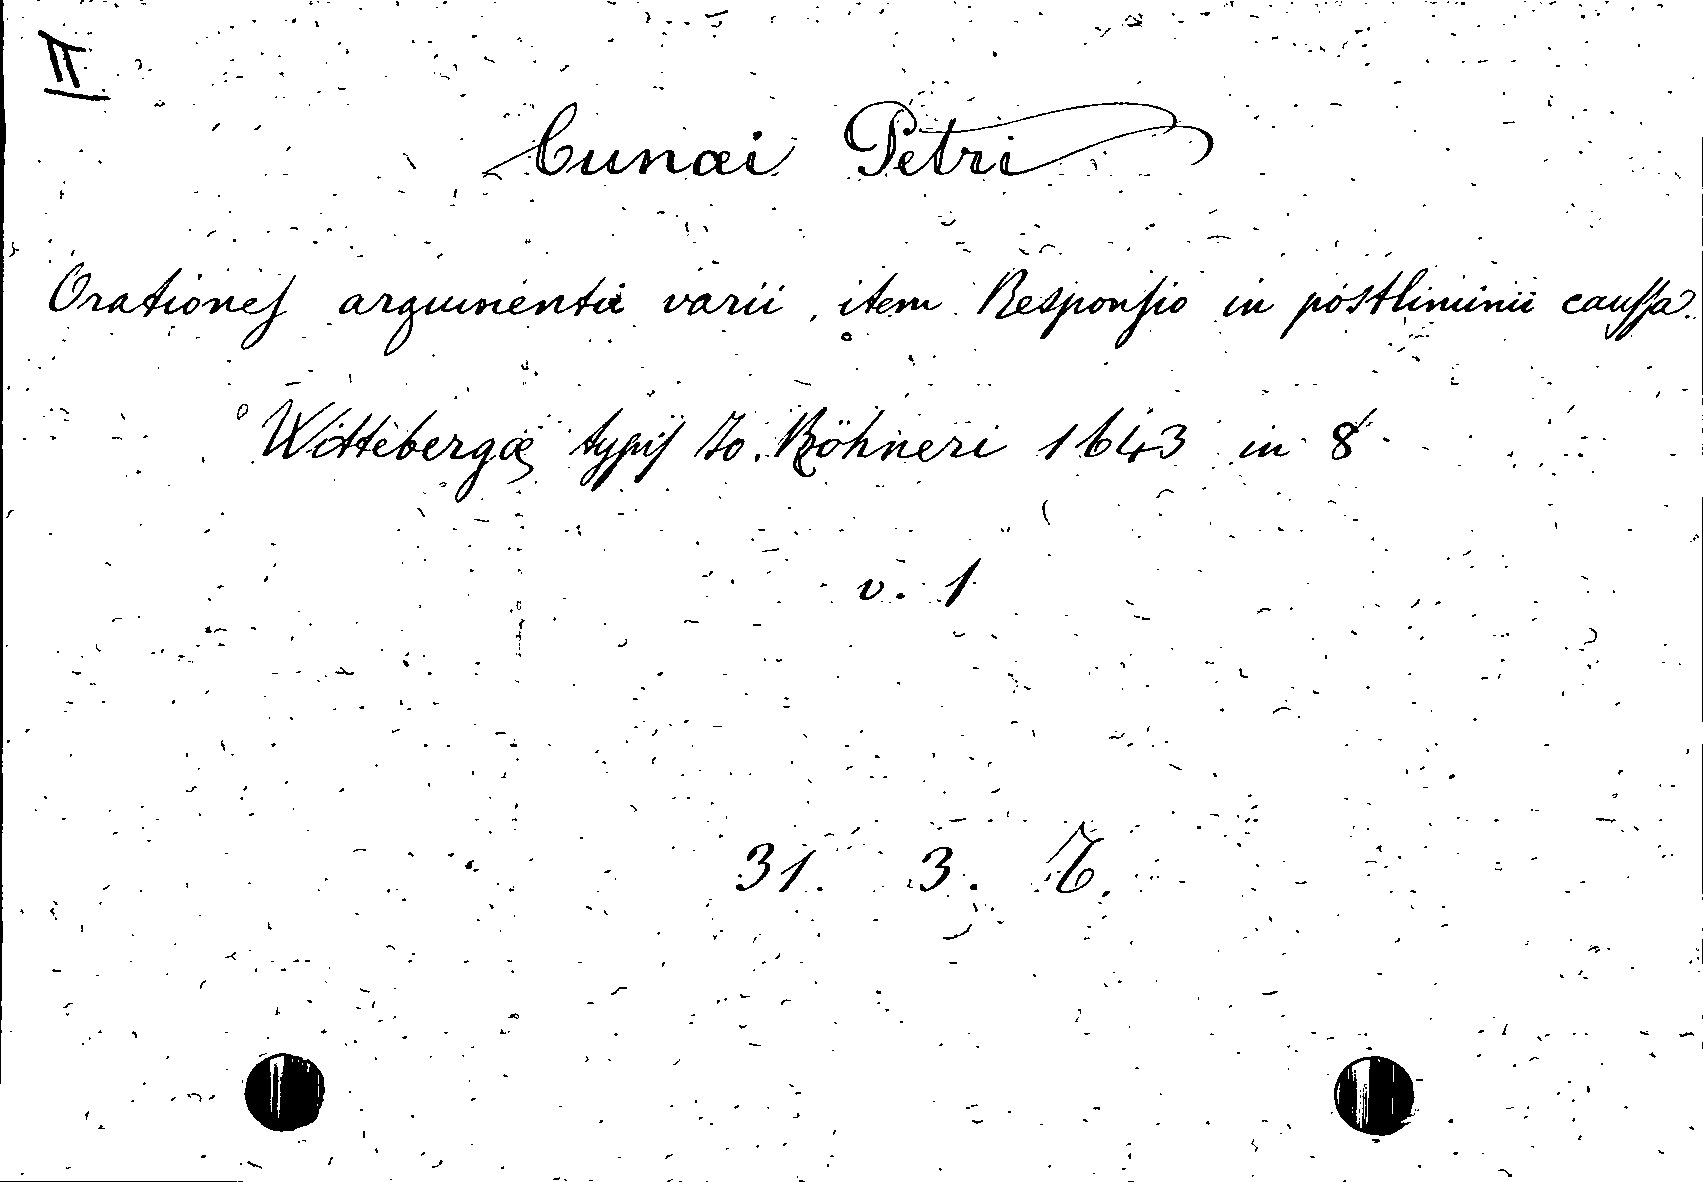 II
Cunæi Petri
Orationes argumenti varii, item Responsio in postliminii caussa.
Wittebergæ typis Jo. Röhneri 1643 in 8
v. 1
31. 3.